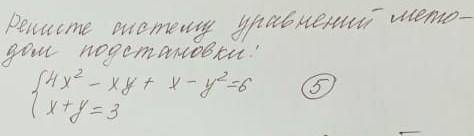 Решите систему уравнений мето-
дом подстановки:
{4x² - xy + x - y² = 6
x + y = 3
⑤